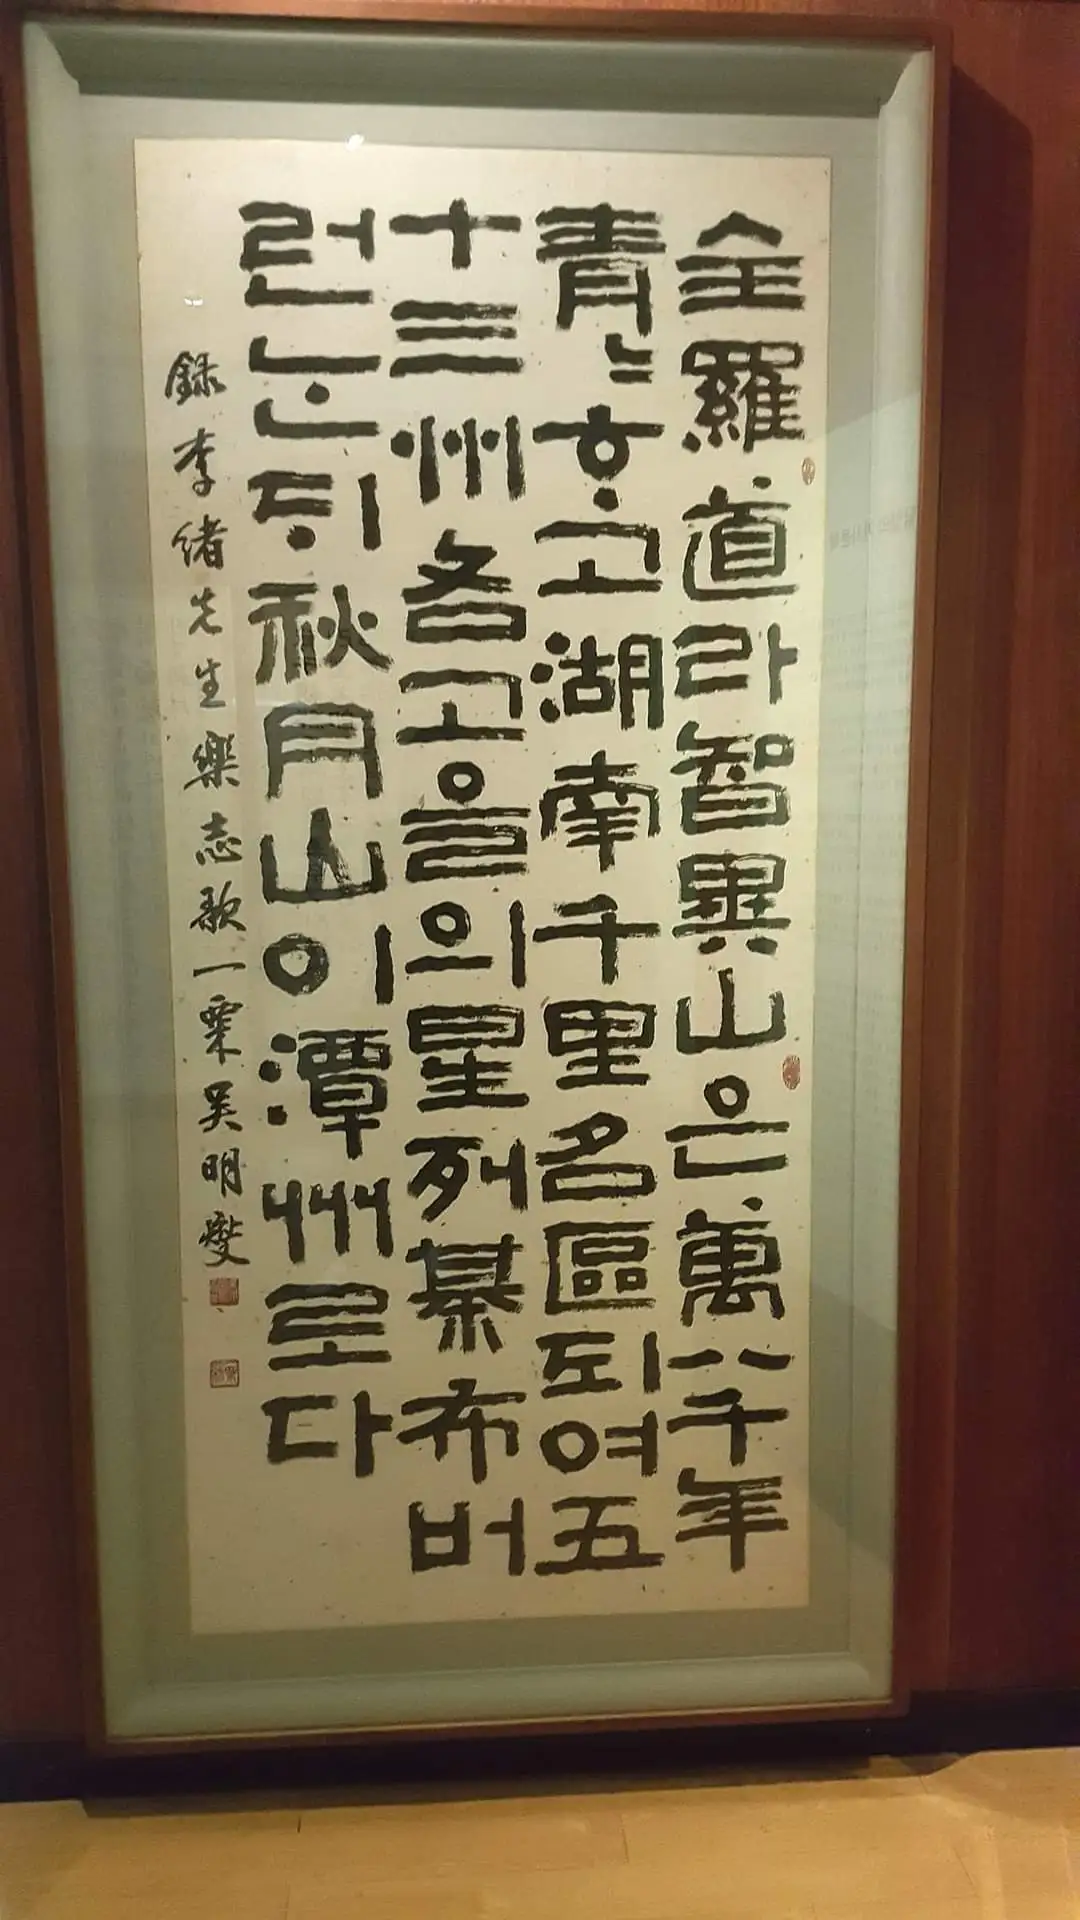 全羅道라智異山은萬八千年
靑〻ᄒᆞ고湖南千里名區되여五
十三州各고을의星列棊布버
런ᄂᆞᆫᄃᆡ秋月山이潭州로다
錄李緖先生樂志歌一粟吳明燮